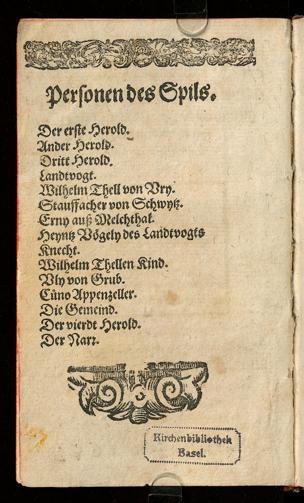 Personen des Spils.
Der erste Herold.
Ander Herold.
Dritt Herold.
Landtvogt.
Wilhelm Thell von Vry.
Stauffacher von Schwytz.
Erny auß Melchthal.
Heyntz Vögely des Landtvogts
Knecht.
Wilhelm Thellen Kind.
Vly von Grub.
Cuͦno Appenzeller.
Die Gemeind.
Der vierdt Herold.
Der Narr.
Kirchenbibliothek
Basel.